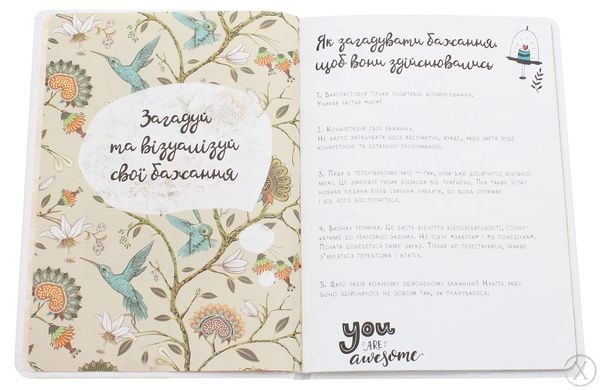 Загадуй
та візуалізуй
свої бажання
Як загадувати бажання,
щоб вони здійснювались
1. Використовуй тільки позитивні формулювання.
Уникай частки «не»!
2. Конкретизуй свої бажання.
Не варто загадувати щось абстрактне, краще, якщо мета буде
конкретною та детально продуманою.
3. Пиши в теперішньому часі — так, ніби вже досягнуто вказаної
межі. Це зменшує ризик відмови від прагнень. При таких уста-
новках людина більш схильна уникати, бо вона отримає
і від чого відступається.
4. Визнач терміни. Це дасть відчуття відповідальності, спону-
катиме до реалізації задуму. Не існує «завтра» і «з понеділка».
Почати доведеться саме зараз. Тільки не перестарайся, інакше
з'являться перевтома і апатія.
5. Щиро радій кожному здійсненому бажанню! Навіть якщо
воно здійснилось не зовсім так, як планувалося.
you
ARE
awesome
X